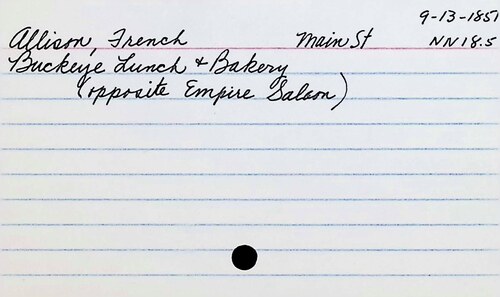 9-13-1857
Allison, French Main St NN18.5
Buckeye Lunch & Bakery
(opposite Empire Saloon)